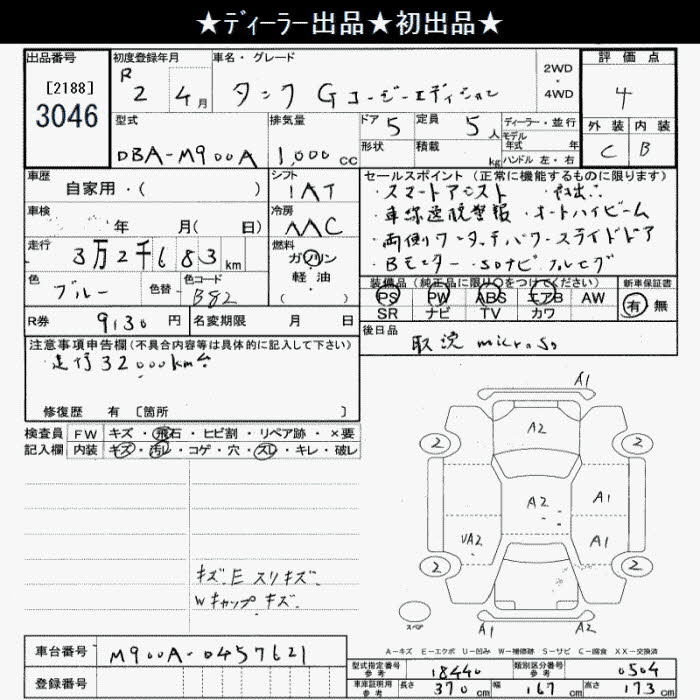 ★ディーラー出品★初出品★
出品番号 初度登録年月 車名・グレード 評価点
[2188] R 2 4月 タンク Gコージーエディション 2WD・4WD 4
3046
型式 排気量 ドア 5 定員 5人 ディーラー・並行 外装 内装
DBA-M900A 1,000cc 形状 積載 kg モデル年式 年 C B
ハンドル 左・右
車歴 シフト セールスポイント(正常に機能するものに限ります)
自家用・( ) IAT ・スマートアシスト
車検 年 月( 日) 冷房 AAC ・車線逸脱警報 ・オートハイビーム
走行 3万2千683km 燃料 ガソリン・軽油( ) ・両側ワンタッチパワースライドドア
色 ブルー 色替 色コード B82 ・Bモニター・SDナビ フルセグ
装備品(純正品に限り○をつけてください) 新車保証書
PS PW ABS エアB AW 有・無
SR ナビ TV カワ
R券 9130円 名変期限 月 日
後日品 取説 microSD
注意事項申告欄(不具合内容等は具体的に記入して下さい)
走行32000km台
修復歴 有 [箇所 ]
検査員 FW キズ・飛石・ヒビ割・リペア跡・×要
記入欄 内装 キズ・汚レ・コゲ・穴・スレ・キレ・破レ
A1
A2
2 2
A2 A1
UA2 A1
2 2
スペア
A1 A2
キズE スリキズ
Wキャップキズ
A-キズ E-エクボ U-凹み W-補修跡 S-サビ C-腐食 XX-交換済
車台番号 M900A-0457621
登録番号
型式指定番号 参考 18440 類別区分番号 参考 0504
車庫証明用 参考 長さ 370cm 幅 167cm 高さ 173cm